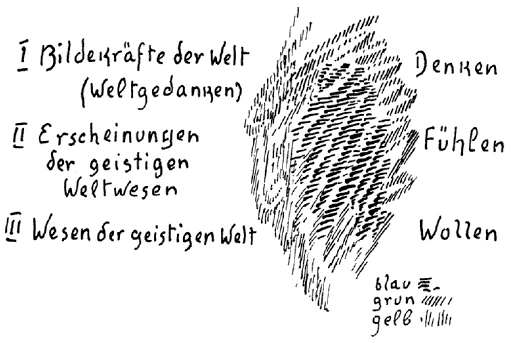 I Bildekräfte der Welt
(Weltgedanken)
II Erscheinungen
der geistigen
Weltwesen
III Wesen der geistigen Welt
Denken
Fühlen
Wollen
blau
grün
gelb